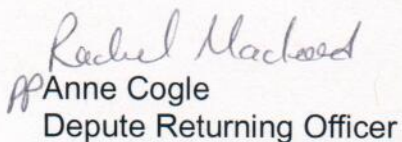 Rachel Macleod
pp Anne Cogle
Depute Returning Officer